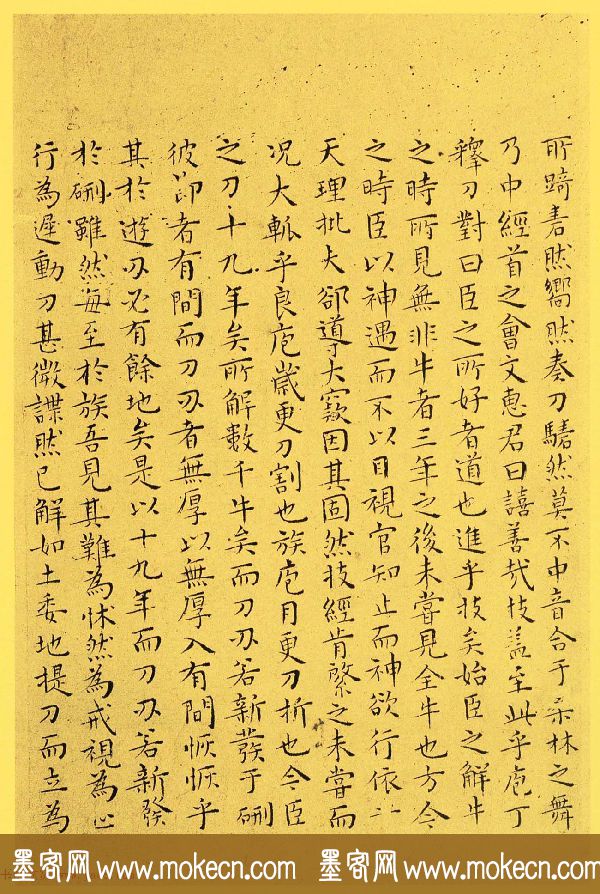 所踦砉然嚮然奏刀騞然莫不中音合于桑林之舞
乃中經首之會文惠君曰譆善哉技盖至此乎庖丁
釋刀對曰臣之所好者道也進乎技矣始臣之解牛
之時所見無非牛者三年之後未嘗見全牛也方今
之時臣以神遇而不以目視官知止而神欲行依乎
天理批大郤導大窾因其固然技經肯綮之未嘗而
况大軱乎良庖歲更刀割也族庖月更刀折也今臣
之刀十九年矣所解數千牛矣而刀刃若新發于硎
彼節者有間而刀刃者無厚以無厚入有間恢恢乎
其於遊刃必有餘地矣是以十九年而刀刃若新發
於硎雖然每至於族吾見其難為怵然為戒視為止
行為遲動刀甚微謋然已解如土委地提刀而立為
墨客网 www.mokecn.com 墨客网 www.mokecn.com